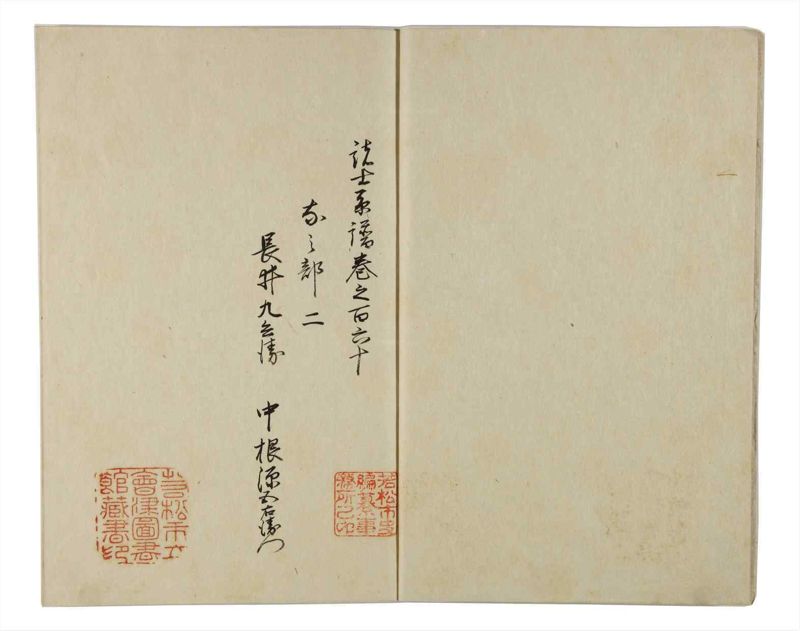 諸士系譜巻之百六十
な之部 二
長井九兵衛 中根源五右衛門
若松市史
編纂事
務所之印
若松市立
會津圖書
館藏書印